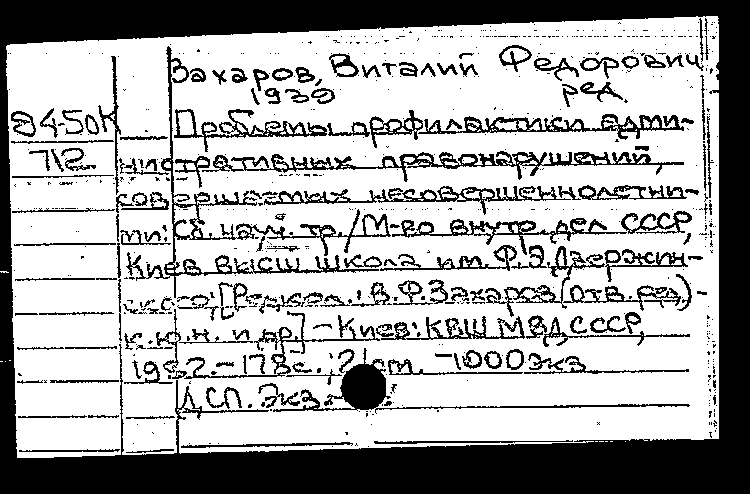 Захаров, Виталий Федорович,
1930 ред.
Д4-50К Проблемы профилактики адми-
712 нистративных правонарушений,
совершаемых несовершеннолетни-
ми: Сб. науч. тр./М-во внутр. дел СССР,
Киев высш школа им. Ф.Э.Дзержин-
ского; [Редкол.: В.Ф.Захаров (отв. ред) -
к.ю.н. и др.] - Киев: КВШ МВД СССР,
1982. - 178с.; 21 cm. - 1000 экз
ДСП. Экз.-